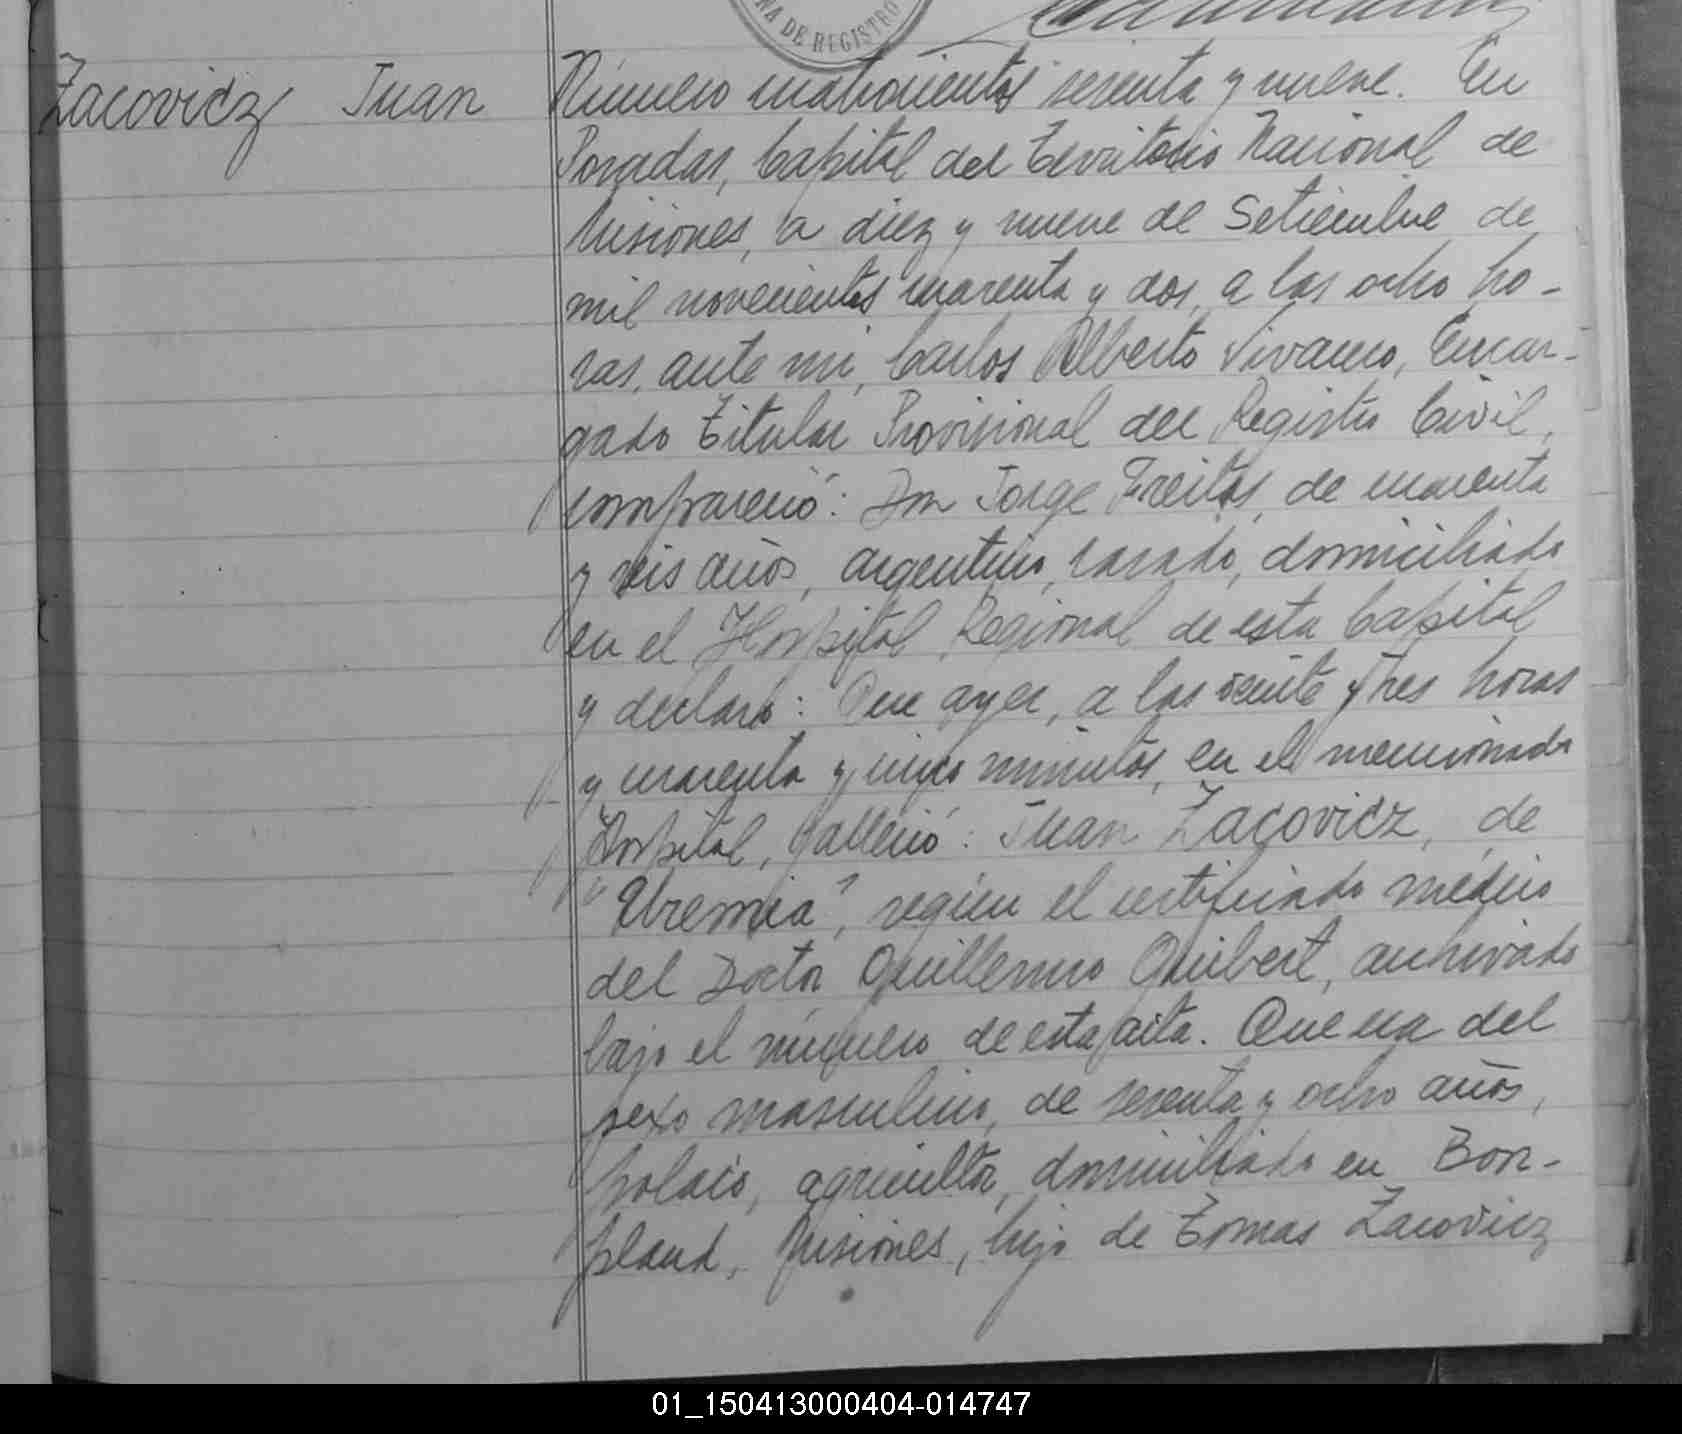 NA DE REGISTRO
Zacovicz Juan
Número cuatrocientos sesenta y nueve. En
Posadas, Capital del Territorio Nacional de
Misiones, a diez y nueve de Setiembre de
mil novecientos cuarenta y dos, a las ocho ho-
ras, ante mi, Carlos Alberto Vivanco, Encar-
gado Titular Provisional del Registro Civil,
compareció: Don Jorge Freitas, de cuarenta
y seis años, argentino, casado, domiciliado
en el Hospital Regional de esta Capital
y declaró: Que ayer, a las veinte y tres horas
y cuarenta y cinco minutos, en el mencionado
Hospital, falleció: Juan Zacovicz, de
"Uremia", según el certificado médico
del Doctor Guillermo Guibert, archivado
bajo el número de esta acta. Que era del
sexo masculino, de sesenta y ocho años,
polaco, agricultor, domiciliado en Bon-
pland, Misiones, hijo de Tomas Zacovicz
01_150413000404-014747